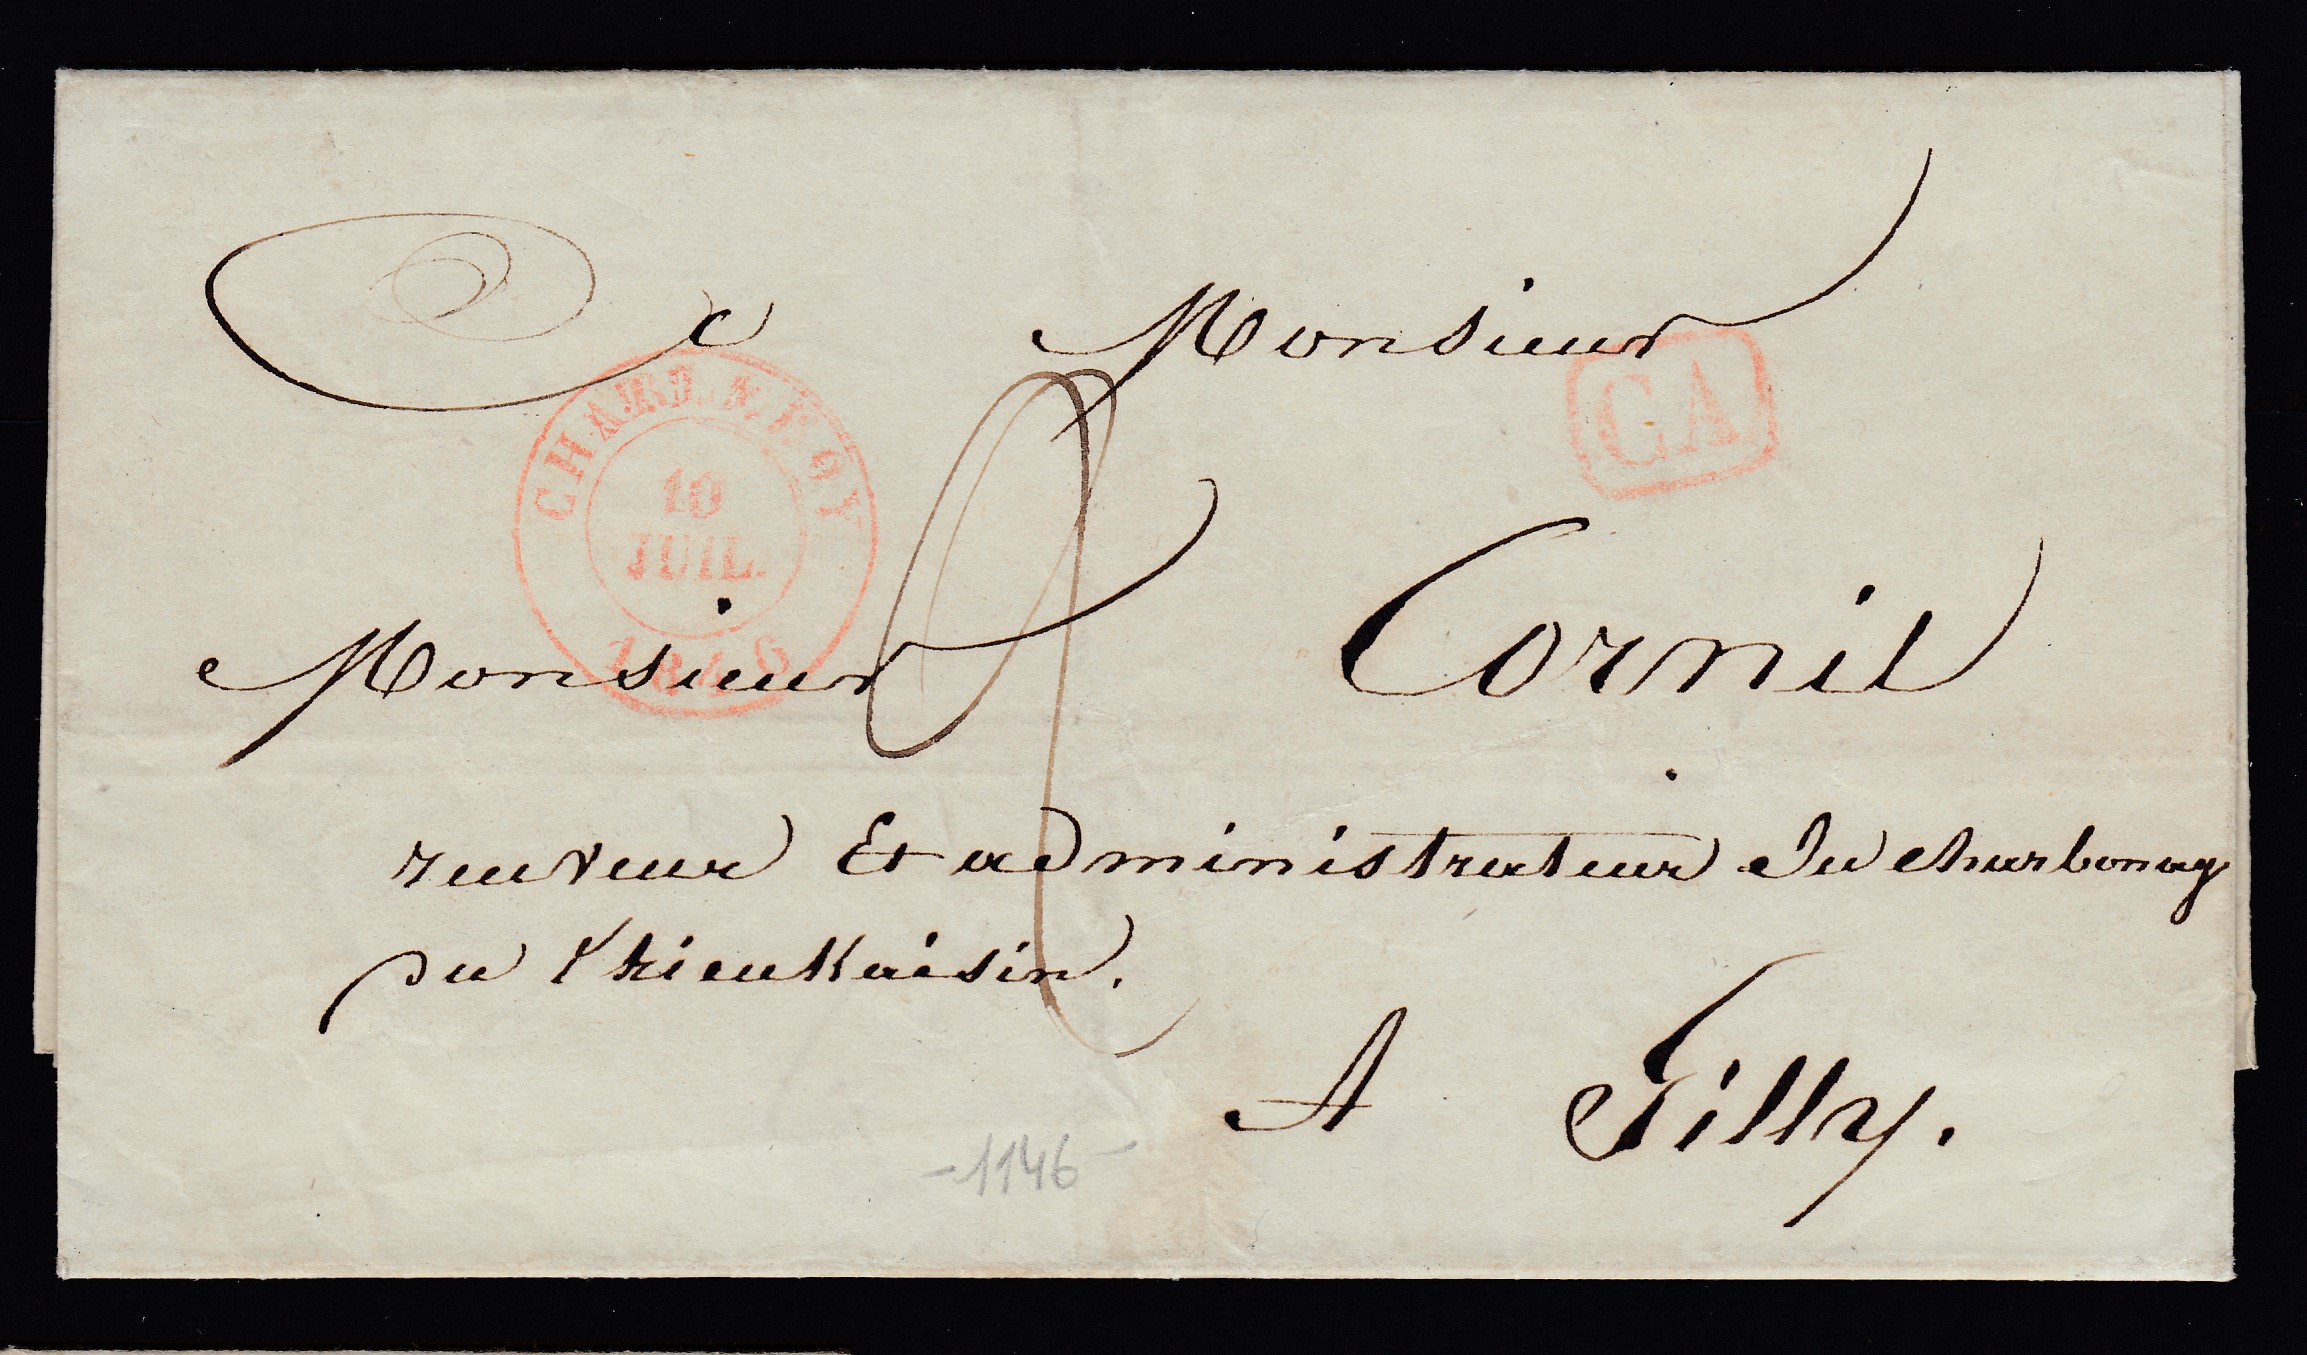 A Monsieur
CA
CHARLEROY
10
JUIL.
1846
Monsieur Cornil
receveur Et administrateur du charbonag
du thieu Kaisin.
A Gilly.
-1146-